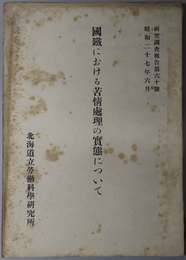 研究調査報告第六十號
昭和二十七年六月
國鐵における苦情處理の實態について
北海道立勞働科學研究所